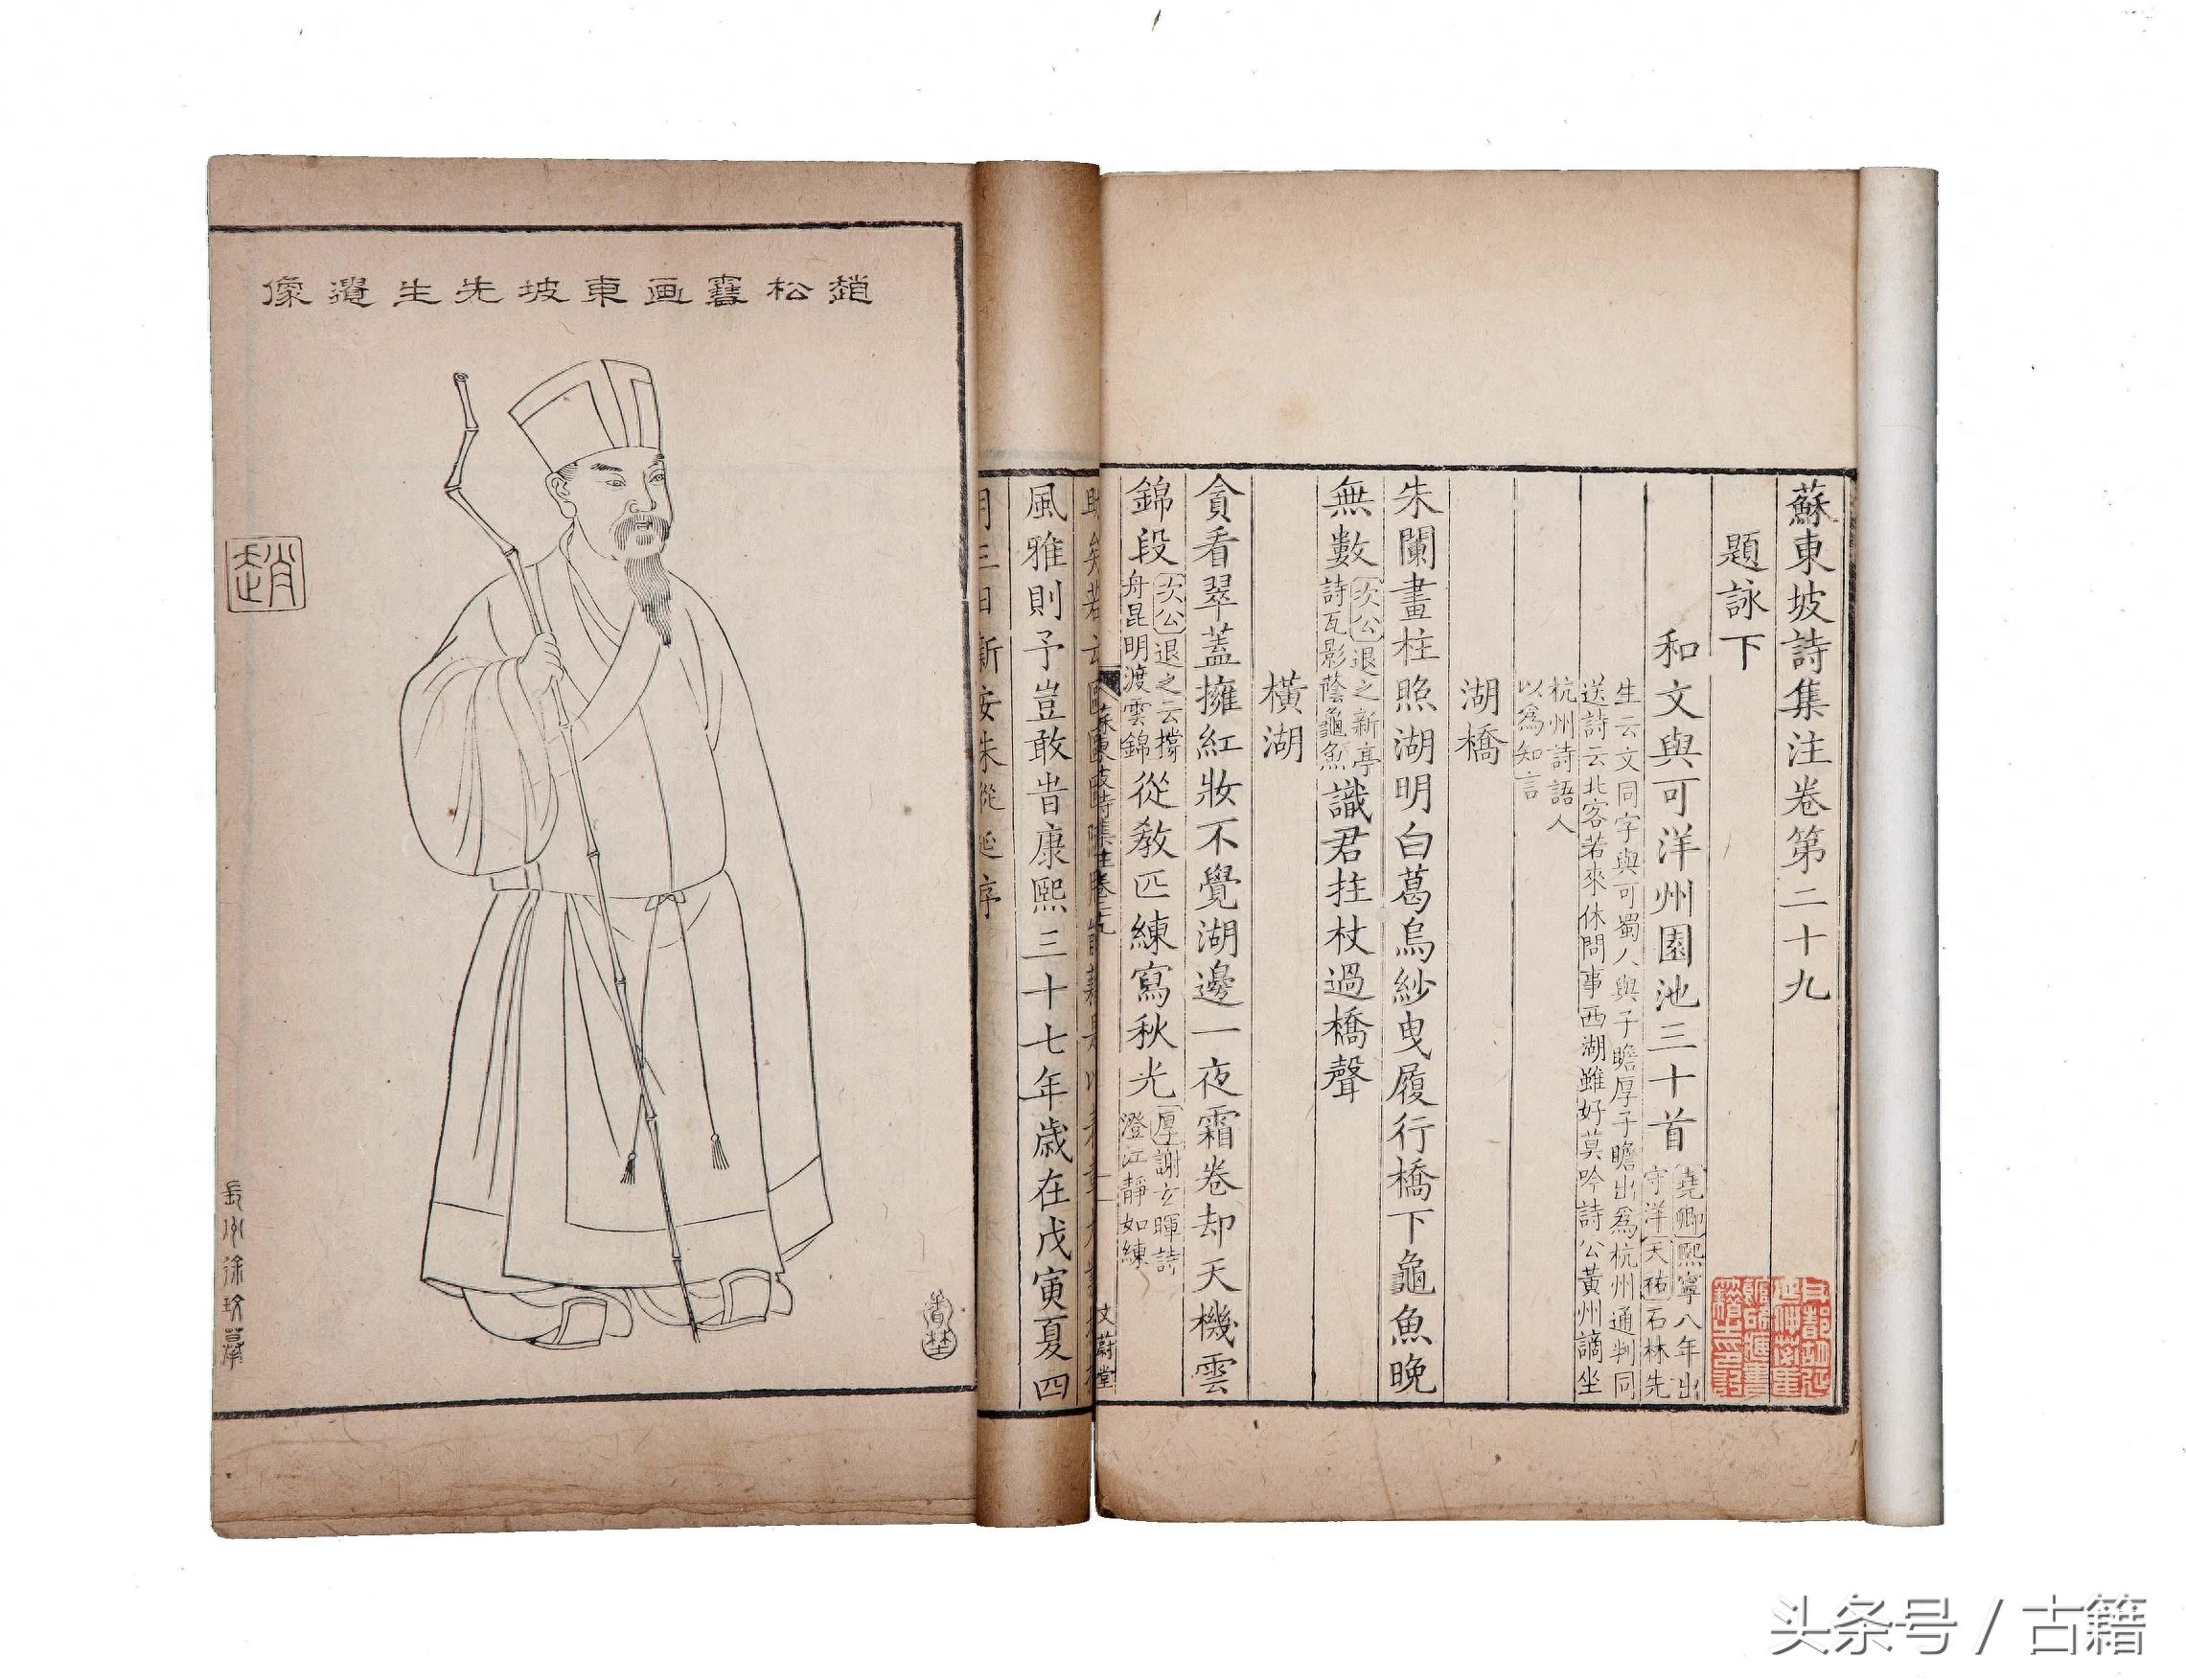 蘇東坡詩集注卷第二十九
題詠下
和文與可洋州園池三十首
堯卿熙寧八年出
守洋天祐石林先
生云文同字與可蜀人與子瞻厚子瞻出爲杭州通判同
送詩云北客若來休問事西湖雖好莫吟詩公黃州謫坐
杭州詩語人
以爲知言
湖橋
朱闌畫柱照湖明白葛烏紗曳履行橋下龜魚晚
無數
次公退之新亭
詩瓦影蔭龜魚
識君拄杖過橋聲
橫湖
貪看翠蓋擁紅妝不覺湖邊一夜霜卷却天機雲
錦段
次公退之云撐
舟昆明渡雲錦
從教匹練寫秋光
厚謝玄暉詩
澄江靜如練
蘇東坡詩集注卷二九
文蔚堂
風雅則予豈敢旹康熙三十七年歳在戊寅夏四
月三日新安朱從延序
趙松雪画東坡先生遺像
趙
長洲徐玫摹
頭条号 / 古籍